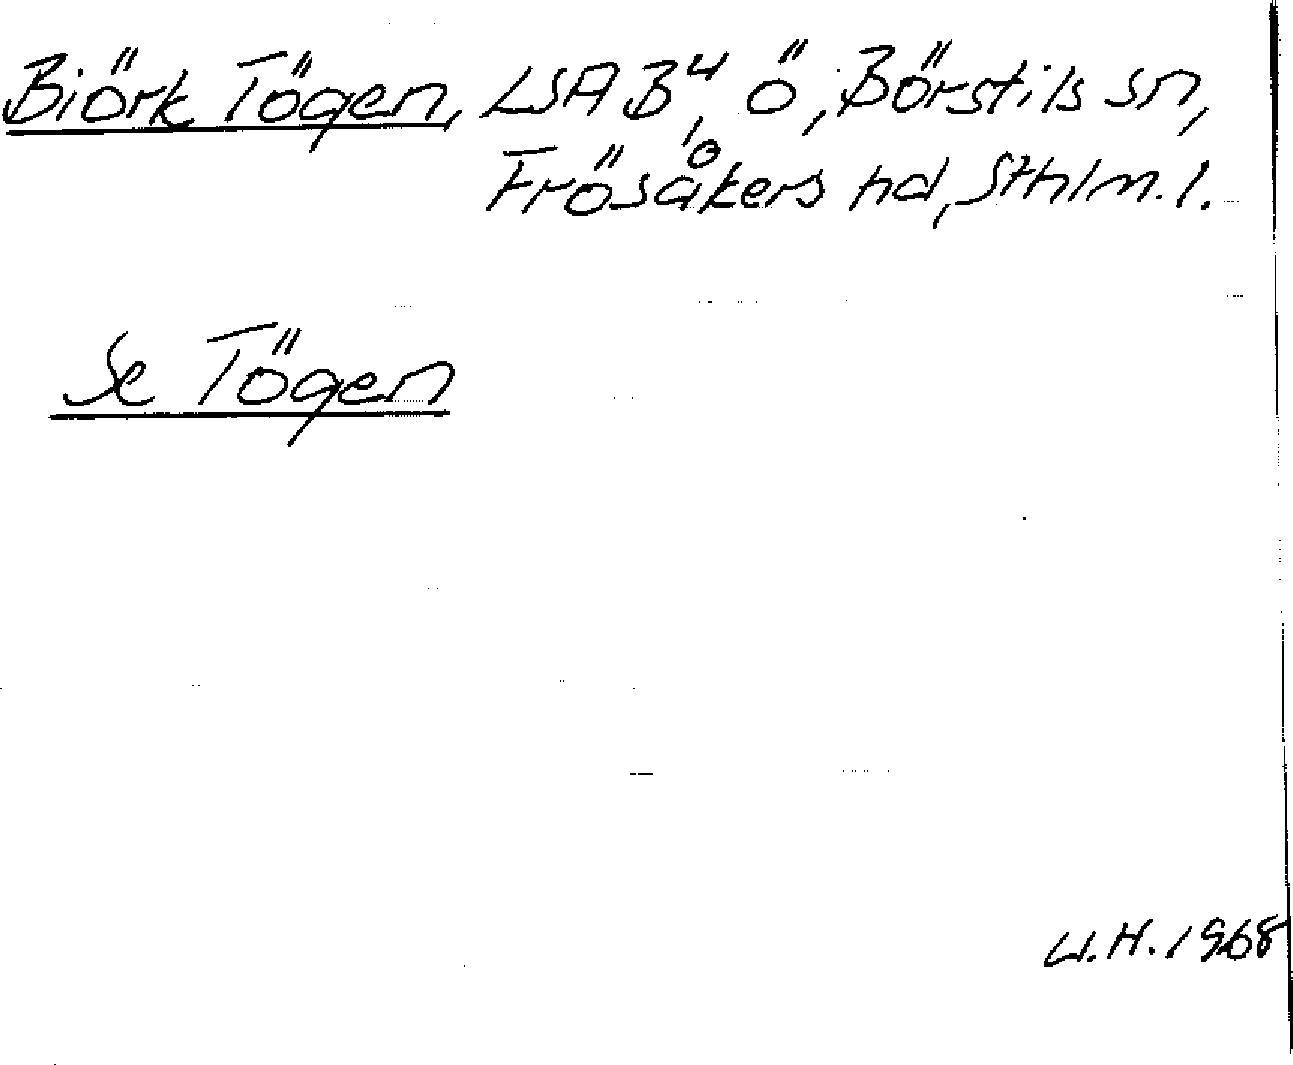 Biörk Tögen, LSA B⁴, ö, Börstils sn,
Frösåkers hd, Sthlm. l.
Se Tögen
W.H. 1968